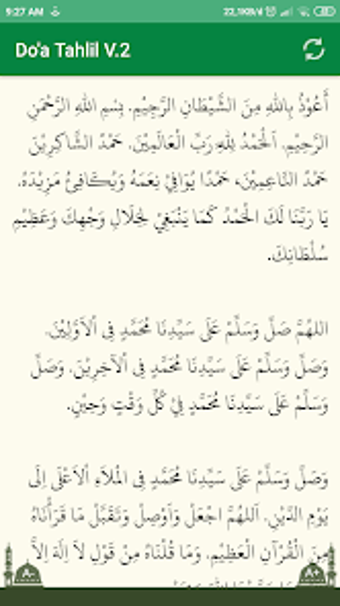 9:27 AM
22,1KB/d
Do'a Tahlil V.2
أَعُوْذُ بِاللهِ مِنَ الشَّيْطَانِ الرَّجِيْمِ. بِسْمِ اللهِ الرَّحْمٰنِ
الرَّحِيْمِ. اَلْحَمْدُ لِلّٰهِ رَبِّ الْعَالَمِيْنَ. حَمْدَ الشَّاكِرِيْنَ
حَمْدَ النَّاعِمِيْنَ، حَمْدًا يُوَافِيْ نِعَمَهُ وَيُكَافِئُ مَزِيْدَهُ.
يَا رَبَّنَا لَكَ الْحَمْدُ كَمَا يَنْبَغِيْ لِجَلَالِ وَجْهِكَ وَعَظِيْمِ
سُلْطَانِكَ.
اللهُمَّ صَلِّ وَسَلِّمْ عَلَى سَيِّدِنَا مُحَمَّدٍ فِى اْلاَوَّلِيْنَ.
وَصَلِّ وَسَلِّمْ عَلَى سَيِّدِنَا مُحَمَّدٍ فِى اْلآخِرِيْنَ. وَصَلِّ
وَسَلِّمْ عَلَى سَيِّدِنَا مُحَمَّدٍ فِيْ كُلِّ وَقْتٍ وَحِيْنٍ.
وَصَلِّ وَسَلِّمْ عَلَى سَيِّدِنَا مُحَمَّدٍ فِى الْمَلاَءِ اْلاَعْلَى اِلَى
يَوْمِ الدِّيْنِ. اَللهُمَّ اجْعَلْ وَاَوْصِلْ وَتَقَبَّلْ مَا قَرَأْنَاهُ
مِنَ الْقُرْآنِ الْعَظِيْمِ. وَمَا قُلْنَاهُ مِنْ قَوْلِ لاَ اِلَهَ اِلاَّ
A-
A+